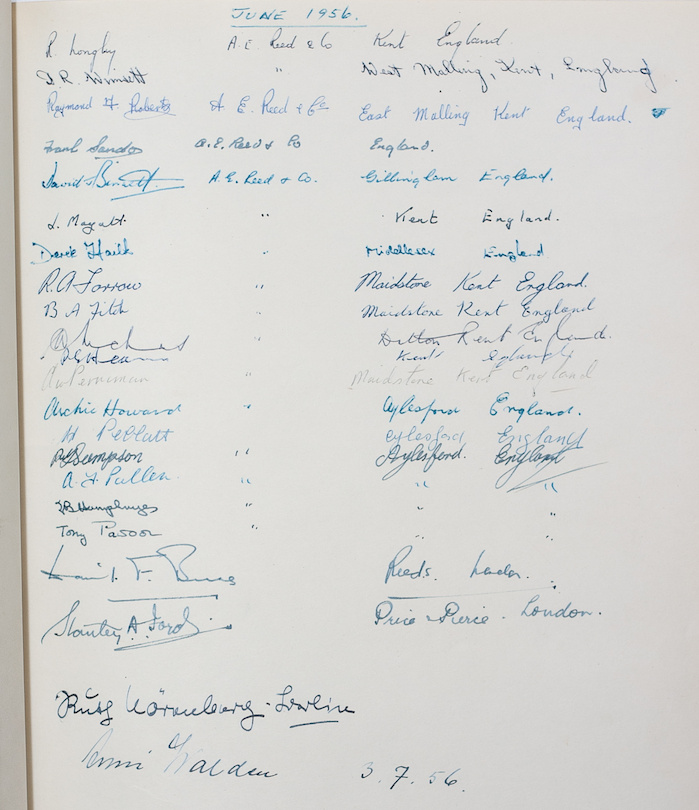 JUNE 1956.
R. Longley A.E. Reed & Co Kent England
D.R. Wimsett " West Malling, Kent, England
Raymond H Roberts A E. Reed & Co East Malling Kent England.
Frank Sandos A.E. Reed & Co England.
David S Binnett. A.E. Reed & Co. Gillingham England.
" Kent England.
Derek " Middlesex England
R.A Forrow " Maidstone Kent England.
B A Fitch " Maidstone Kent England
" Ditton Kent England.
Kent England
Maidstone Kent England
Archie Howard " Aylesford England.
H Pellatt Aylesford England
Sampson " Aylesford. England
A. F. Pullen. " " "
Humphryes " " "
Tony " " "
F. Reeds. London.
Stanley A. Ford Price & Pierce. London.
Ruth
3.7.56.